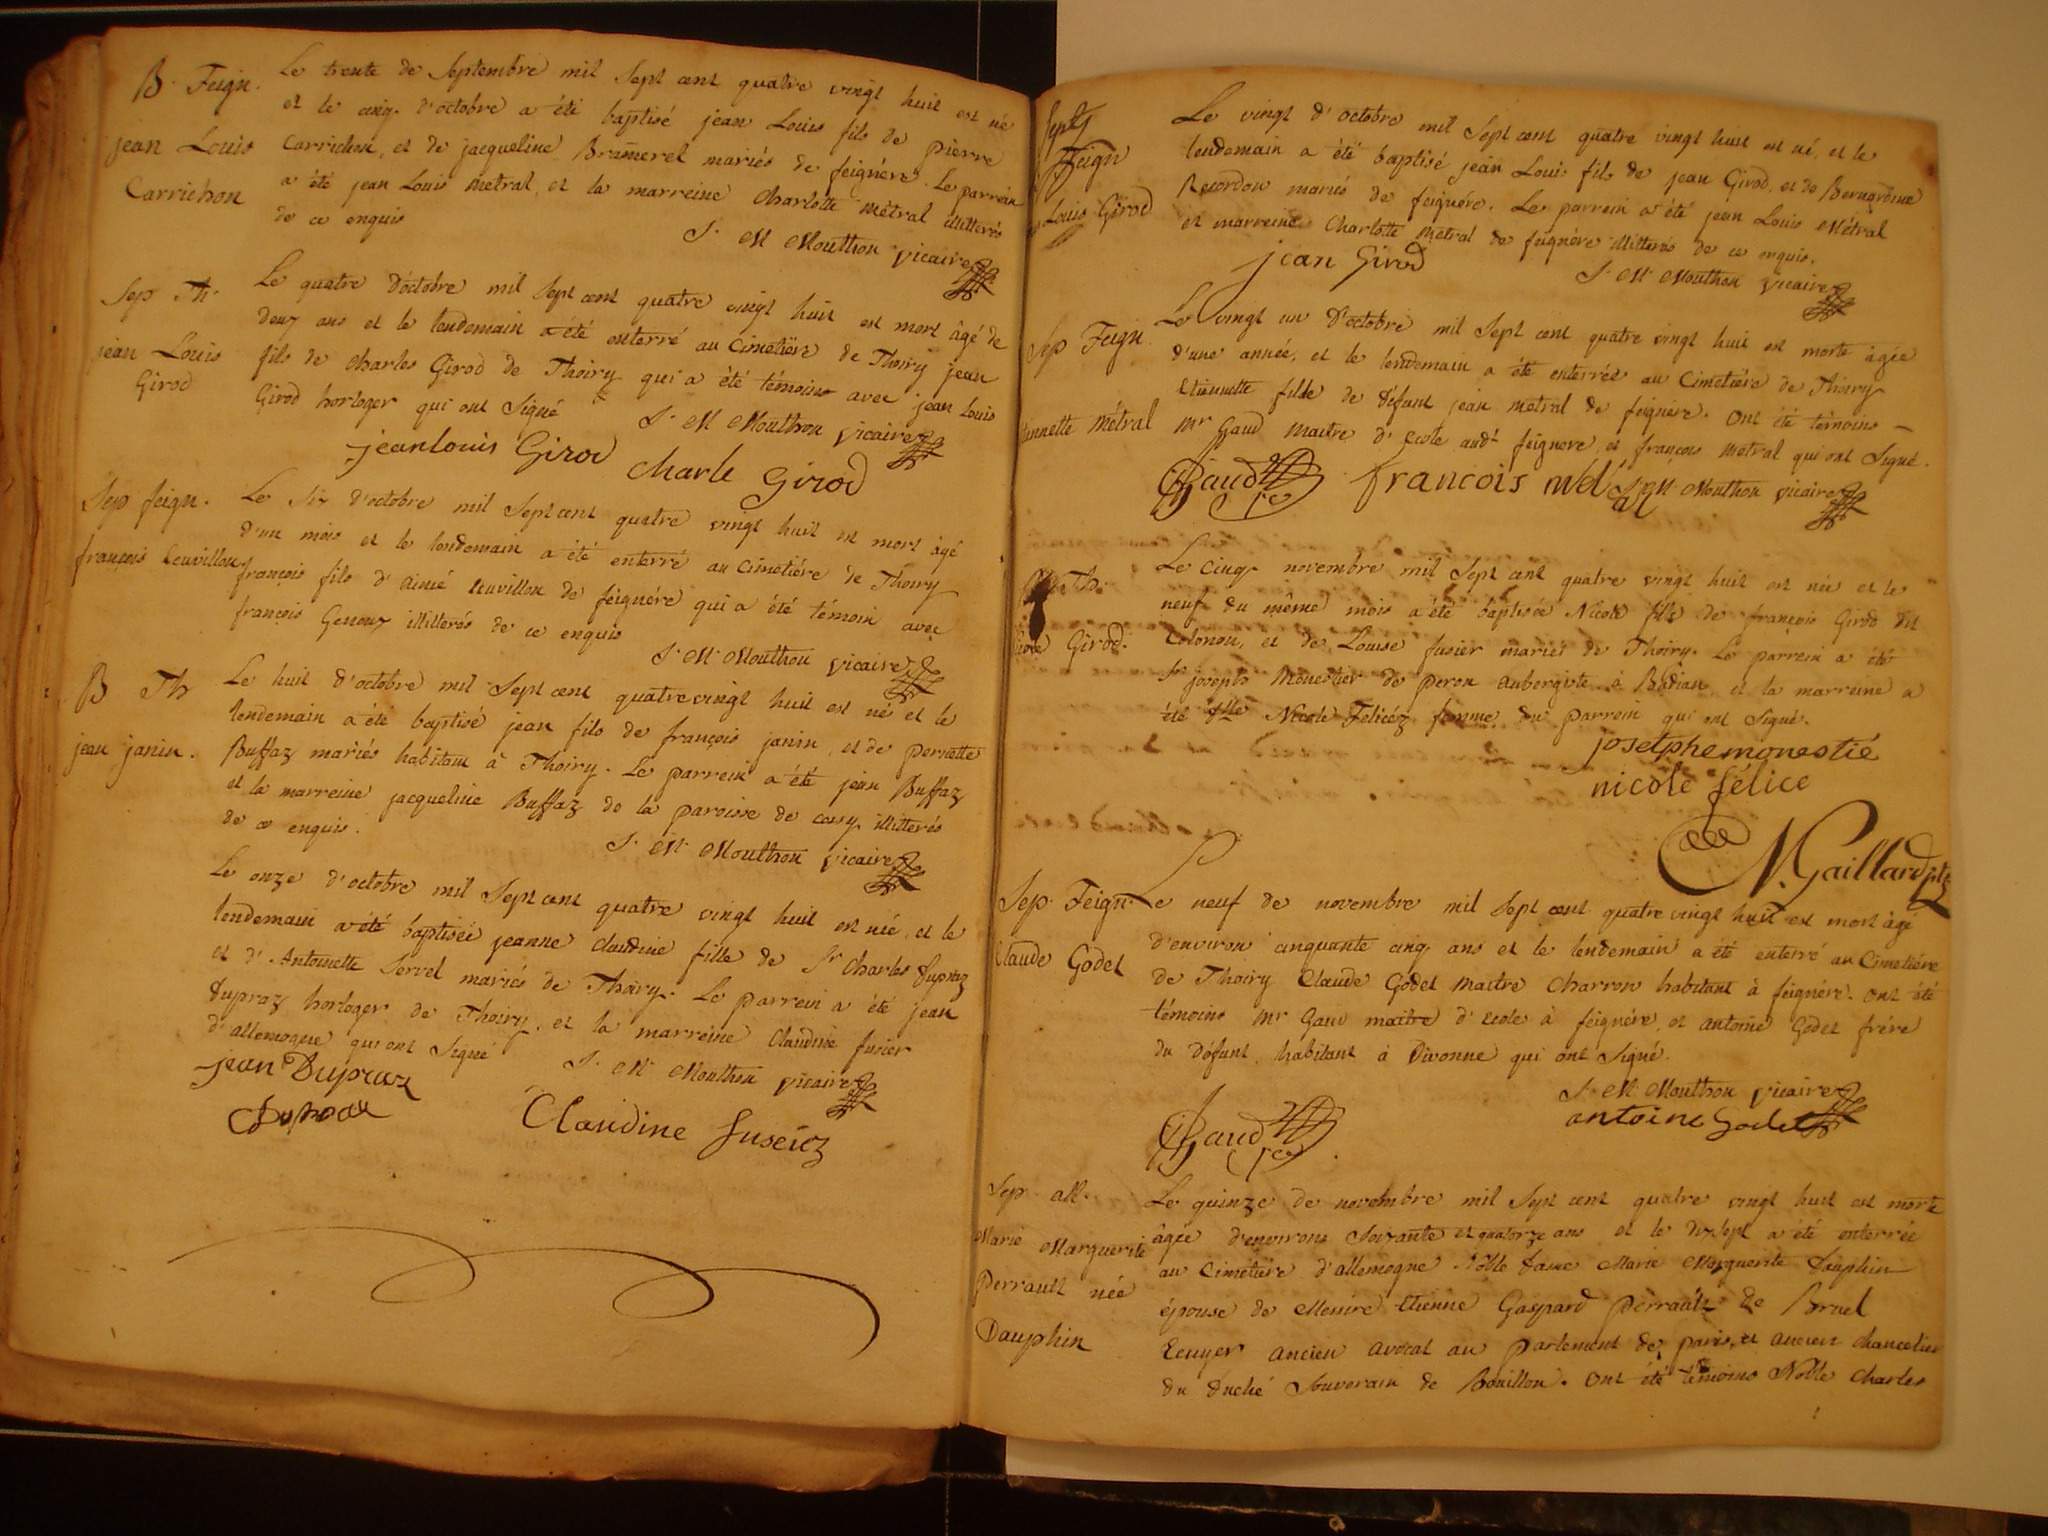 B. Feign.
jean Louis
Carrichon
Le trente de Septembre mil Sept cent quatre vingt huit est né
et le cinq d'octobre a été baptisé jean Louis fils de pierre
Carrichon, et de jacqueline Bramerel mariés de feignére. Le parrein
a été jean Louis Metral, et la marreine Charlotte Métral illiterés
de ce enquis
J. M Mouthon vicaire
Sep Th.
jean Louis
Girod
Le quatre d'octobre mil Sept cent quatre vingt huit est mort âgé de
deux ans et le lendemain a été enterré au Cimetière de Thoiry jean
fils de Charles Girod de Thoiry qui a été témoins avec jean Louis
Girod horloger qui ont Signé
J. M Mouthon vicaire
jeanlouis Girod
Charle Girod
Sep feign.
françois Cuvillon
Le Six d'octobre mil Sept cent quatre vingt huit est mort âgé
d'un mois et le lendemain a été enterré au Cimetiére de Thoiry
françois fils d'aimé Cuvillon de feignére qui a été témoin avec
françois Genoux illiterés de ce enquis
J. M. Mouthon vicaire
B Th
jean janin.
Le huit d'octobre mil Sept cent quatre vingt huit est né et le
lendemain a été baptisé jean fils de françois janin, et de perrette
Buffaz mariés habitant à Thoiry. Le parrein a été jean Buffaz
et la marreine jacqueline Buffaz de la paroisse de cesy illiterés
de ce enquis.
J. M. Mouthon vicaire
Le onze d'octobre mil Sept cent quatre vingt huit est née, et le
lendemain a été baptiseé jeanne Claudine fille de Sr Charles Dupraz
et d'Antoinette Servel mariés de Thoiry. Le parrein a été jean
Dupraz horloger de Thoiry, et la marreine Claudine fusier
d'allemogne qui ont Signé
J. M. Mouthon vicaire
jean Dupraz
Dupraz
Claudine fuseiez
Feign
Louis Girod
Le vingt d'octobre mil Sept cent quatre vingt huit est né, et le
lendemain a été baptisé jean Louis fils de jean Girod, et de Bernardine
Recordon mariés de feignére. Le parrein a été jean Louis Métral
et marreine Charlotte Metral de feignére illiterés de ce enquis.
jean Girod
J. M. Mouthon vicaire
Sep Feign
Métral
Le vingt un d'octobre mil Sept cent quatre vingt huit est morte âgée
d'une année, et le lendemain a été enterrée au Cimetiére de Thoiry
Etiennette fille de défunt jean metral de feignére. Ont été témoins
Mr Gaud Maitre d'Ecole audt feignere, et françois Metral qui ont Signé.
Gaud
francois
J. M. Mouthon vicaire
Th.
Girod.
Le Cinq novembre mil Sept cent quatre vingt huit est née et le
neuf du même mois a été baptisée Nicole fille de françois Girod dit
Colonou, et de Louise fusier mariés de Thoiry. Le parrein a été
Sr joseph Monestier de peron aubergiste à Badian et la marreine a
été Nicole Felicéz femme du parrein qui ont Signé.
joselphe monestié
nicole félice
N. Gaillard
Sep. Feign.
Claude Godet
Le neuf de novembre mil Sept cent quatre vingt huit est mort âgé
d'environ cinquante cinq ans et le lendemain a été enterré au Cimetiére
de Thoiry Claude Godet Maitre Charron habitant à feignére. Ont été
témoins Mr Gaud maitre d'Ecole à feignére, et antoine Godet frére
du défunt, habitant à Divonne qui ont Signé.
J. M. Mouthon vicaire
antoine Godet
Gaud
Sep. all.
Marie Marguerite
Perrault née
Dauphin
Le quinze de novembre mil Sept cent quatre vingt huit est morte
âgée d'environs soixante et quatorze ans et le dixsept a été enterrée
au Cimetière d'allemogne Noble Dame Marie Marguerite Dauphin
épouse de Messire Etienne Gaspard perrault de Bruel
Ecuyer ancien avocat au parlement de paris, et ancien chancelier
du Duché Souverain de Bouillon. Ont été témoins Noble Charles